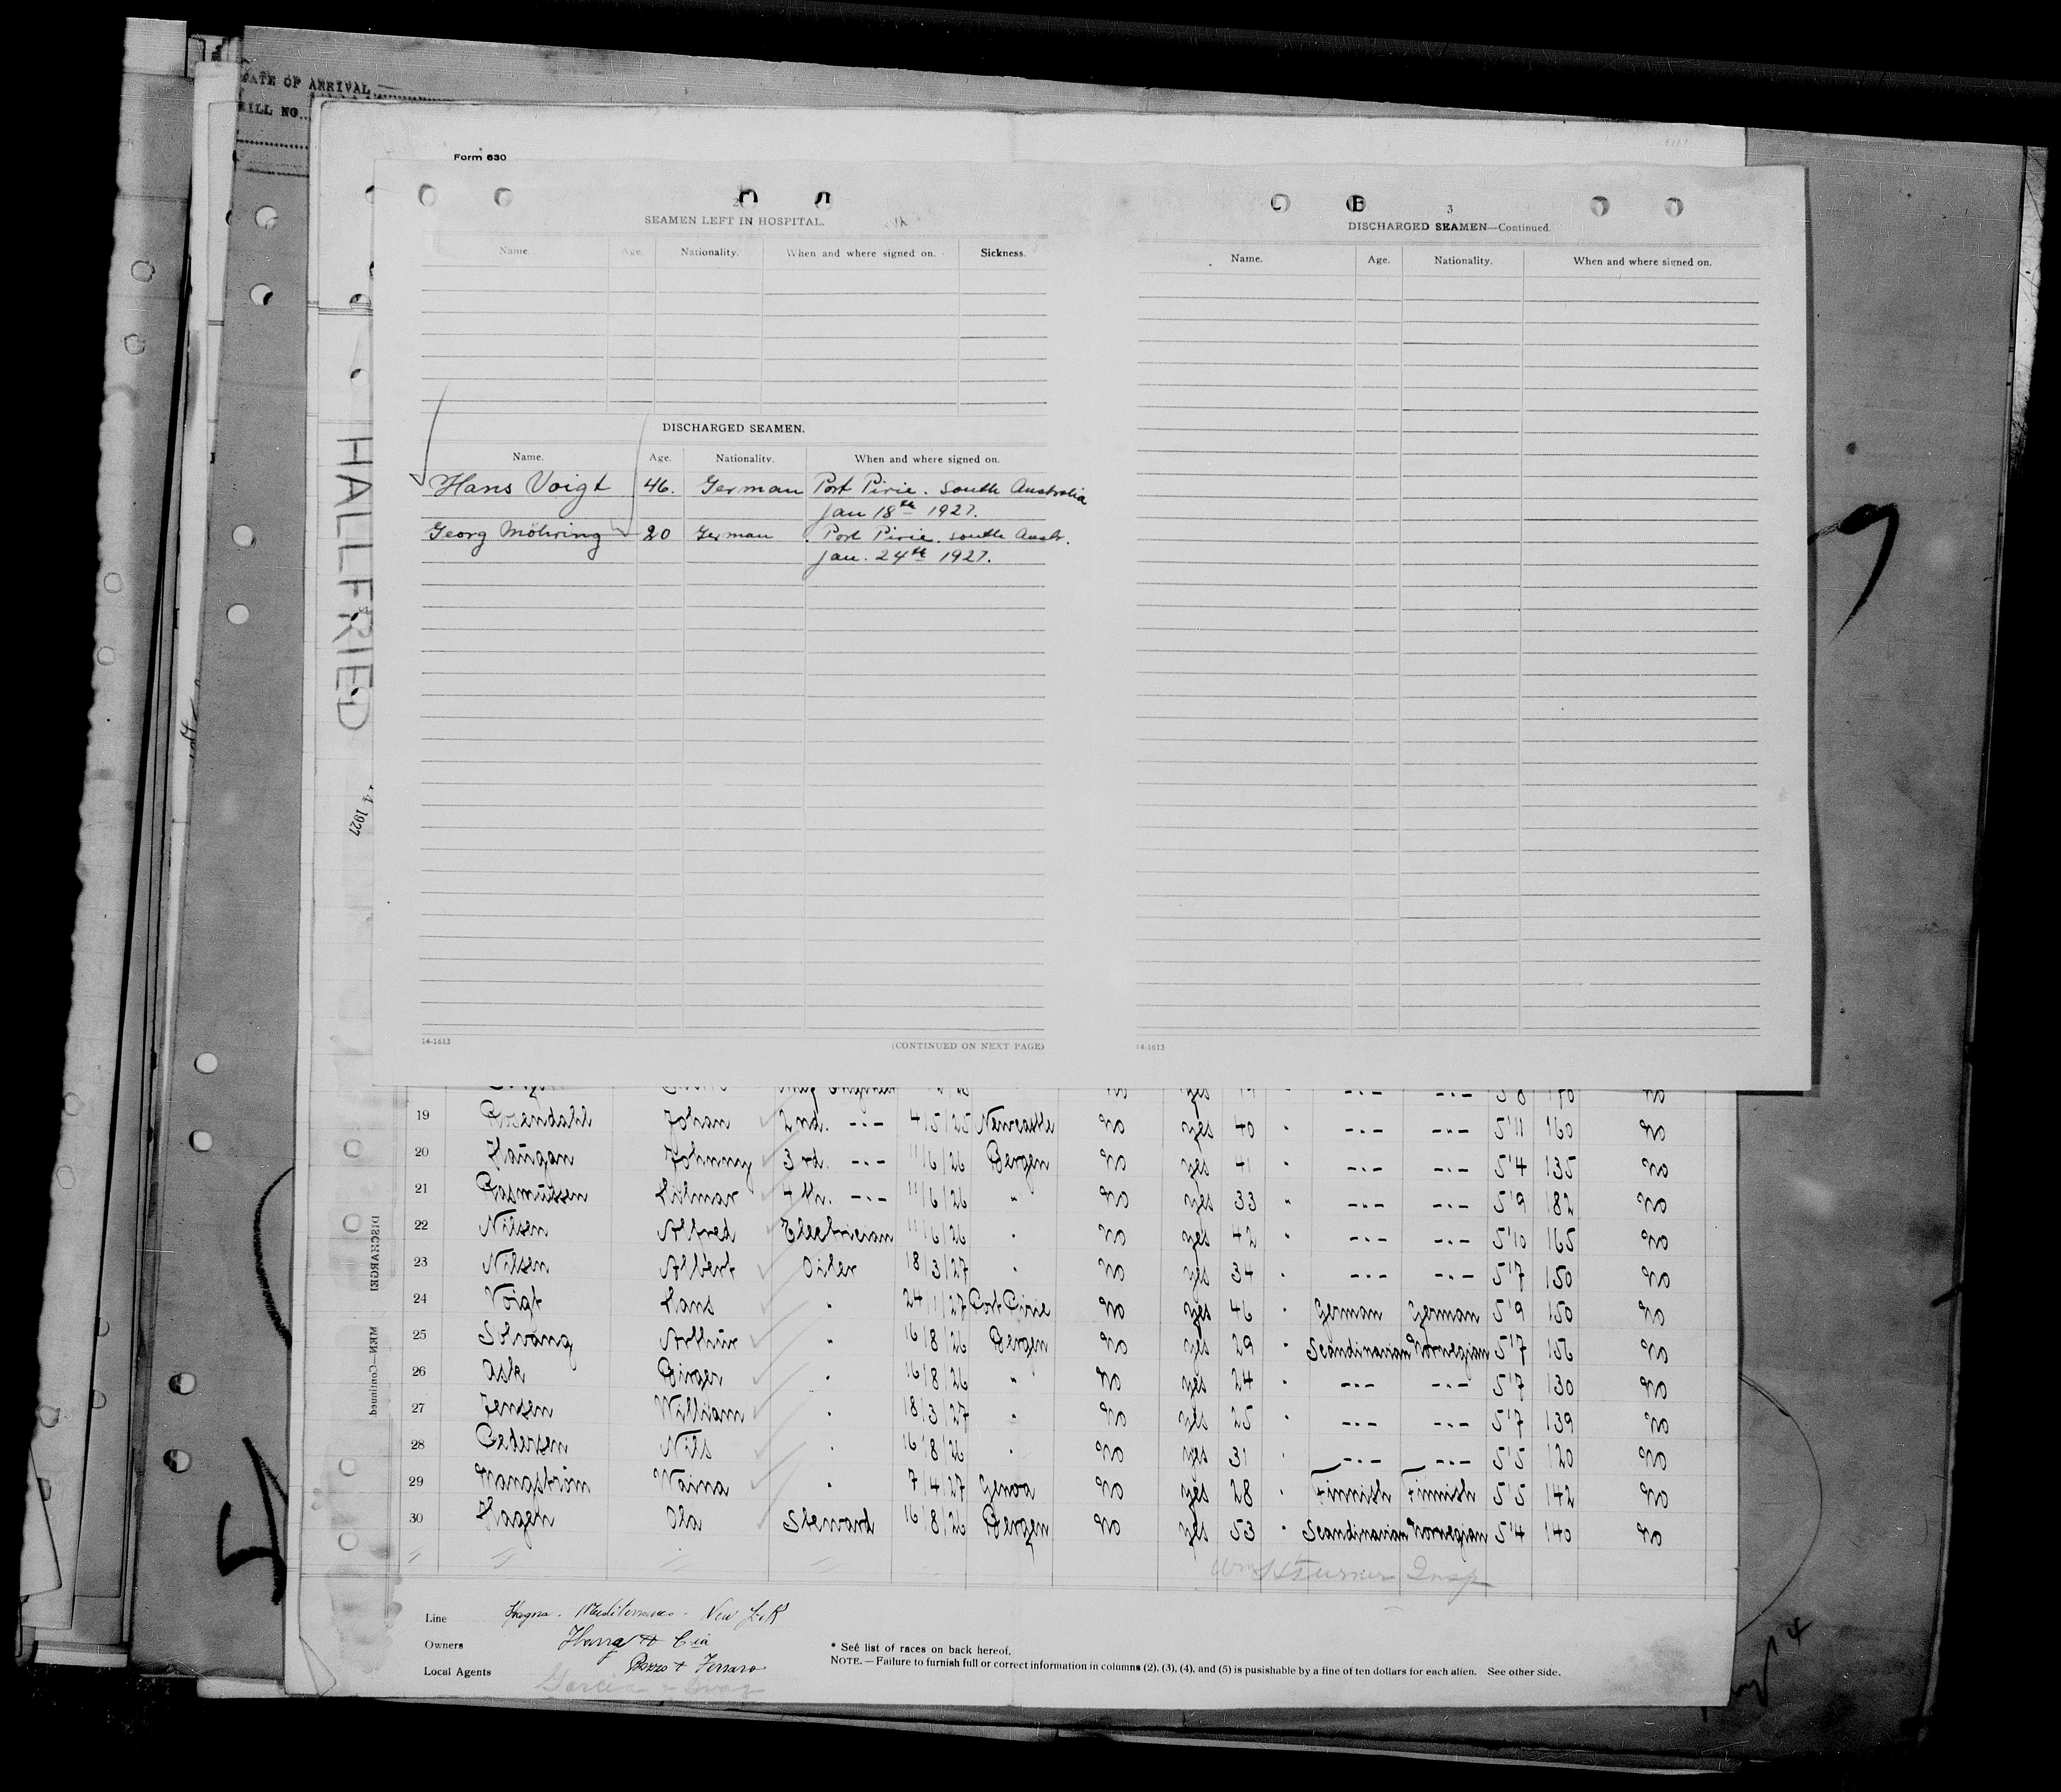 DATE OF ARRIVAL
BILL NO.
Form 630
2
SEAMEN LEFT IN HOSPITAL.
Name. Age. Nationality. When and where signed on. Sickness.
DISCHARGED SEAMEN.
Name. Age. Nationality. When and where signed on.
Hans Voigt 46. German Port Pirie. South Australia
Jan 18th 1927.
Georg Möhring 20 German Port Pirie. South Austr.
Jan. 24th 1927.
14-1613 (CONTINUED ON NEXT PAGE)
3
DISCHARGED SEAMEN—Continued.
Name. Age. Nationality. When and where signed on.
14-1613
HALLFRIED
4 1927
DISCHARGE
MEN—Continued.
no yes -"- -"- 5'8 170 no
19 Rosendahl Johan 2nd. -"- 4/5/25 Newcastle no yes 40 " -"- -"- 5'11 160 no
20 Haugan Johnny 3rd. -"- 11/6/26 Bergen no yes 41 " -"- -"- 5'4 135 no
21 Rasmussen Hilmar 4th. -"- 11/6/26 " no yes 33 " -"- -"- 5'9 182 no
22 Nilsen Alfred Electrician 11/6/26 " no yes 42 " -"- -"- 5'10 165 no
23 Nilsen Albert Oiler 18/3/27 " no yes 34 " -"- -"- 5'7 150 no
24 Voigt Hans " 24/1/27 Port Pirie no yes 46 " German German 5'9 150 no
25 Solvang Arthur " 16/8/26 Bergen no yes 29 " Scandinavian Norwegian 5'7 156 no
26 Ask Birger " 16/8/26 " no yes 24 " -"- -"- 5'7 130 no
27 Jensen William " 18/3/27 " no yes 25 " -"- -"- 5'7 139 no
28 Pedersen Nils " 16/8/26 " no yes 31 " -"- -"- 5'5 120 no
29 Wangström Waina " 7/4/27 Genoa no yes 28 " Finnish Finnish 5'5 142 no
30 Hagen Ola Steward 16/8/26 Bergen no yes 53 " Scandinavian Norwegian 5'4 140 no
Wm H Turner Insp
Line Mediterraneo - New York
Owners Ybarra & Cia
Local Agents Bozzo & Ferraro
Garcia & Diaz
* See list of races on back hereof.
NOTE.—Failure to furnish full or correct information in columns (2), (3), (4), and (5) is pusishable by a fine of ten dollars for each alien. See other side.